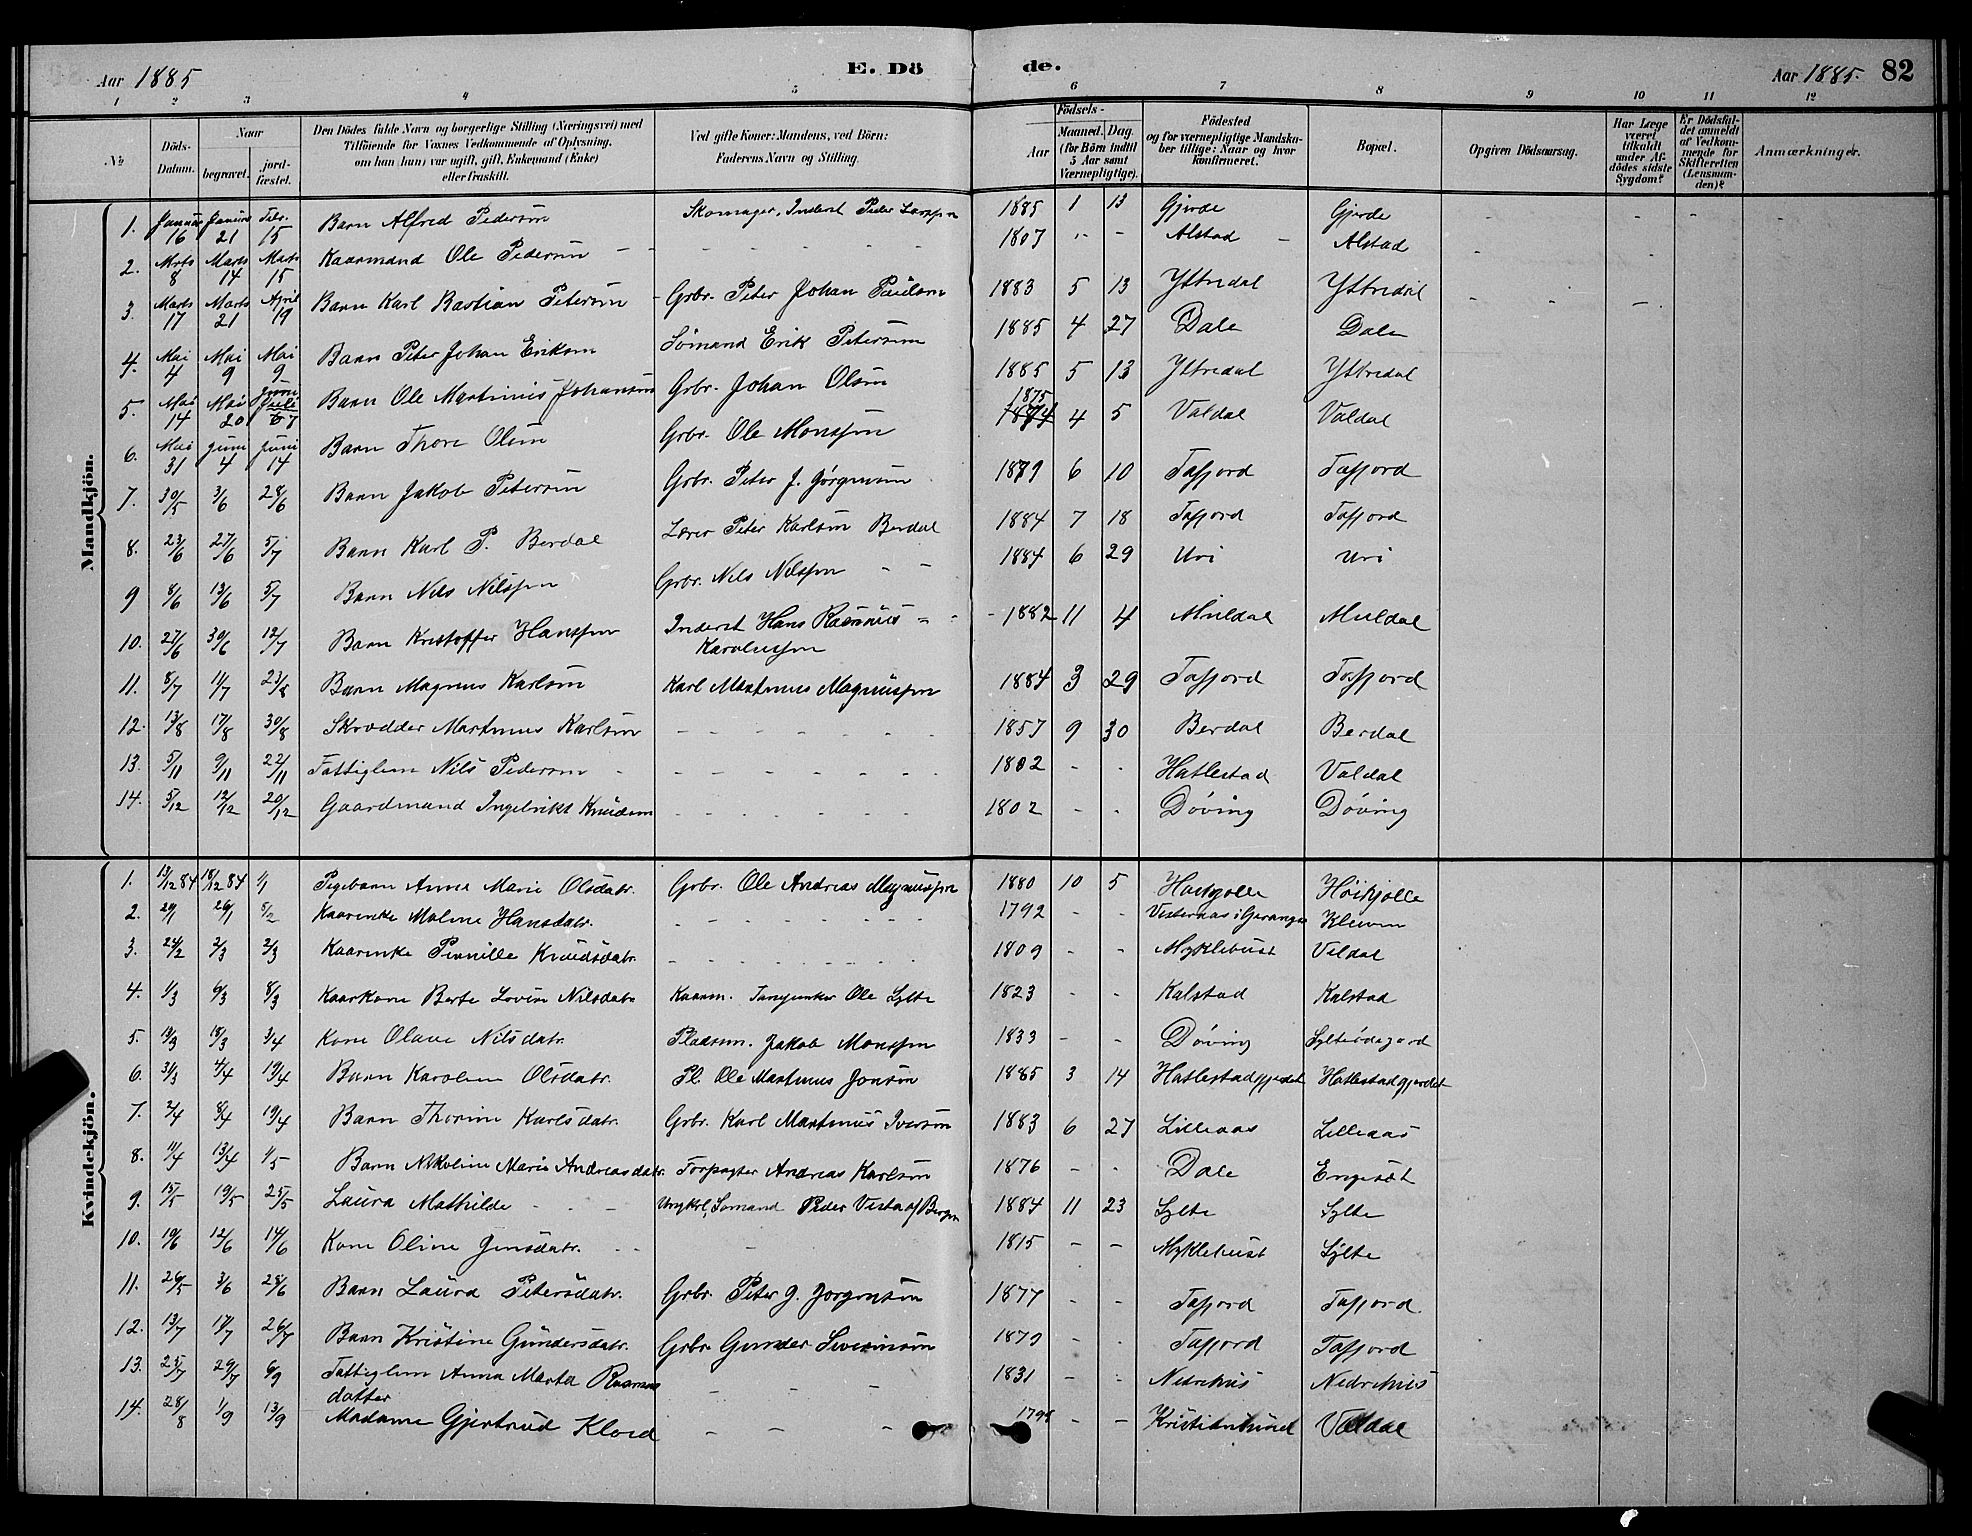 Aar 1885
E. Dö
de.
Aar 1885.
82
1 2 3 4 5 6 7 8 9 10 11 12
No
Döds-Datum.
Naar begravet.
jord-fæstet.
Den Dödes fulde Navn og borgerlige Stilling (Næringsvei) med
Tilföiende for Voxnes Vedkommende af Oplysning,
om han (hun) var ugift, gift, Enkemand (Enke)
eller fraskilt.
Ved gifte Koner: Mandens, ved Börn:
Faderens Navn og Stilling.
Födsels-
Aar
Maaned. Dag.
(for Börn indtil
5 Aar samt
Værnepligtige).
Födested
og for værnepligtige Mandska-
ber tillige: Naar og hvor
konfirmeret.
Bopæl.
Opgiven Dödsaarsag.
Har Læge
været
tilkaldt
under Af-
dödes sidste
Sygdom?
Er Dödsfal-
det anmeldt
af Vedkom-
mende for
Skifteretten
(Lensman-
den)?
Anmærkninger.
Mandkjön.
1. Januar 16 Januar 21 Febr. 15 Barn Alfred Pedersen Skomager, Inderst Peder Larssen 1885 1 13 Gjerde Gjerde
2. Marts 8 Marts 14 Marts 15 Kaarmand Ole Pedersen - - 1807 - - Alstad - Alstad
3. Marts 17 Marts 21 April 19 Barn Karl Bastian Petersen Grbr. Peter Johan Paulsen 1883 5 13 Yttredal Yttredal
4. Mai 4 Mai 9 Mai 9 Barn Peter Johan Eriksen Sømand Erik Petersen 1885 4 27 Dale Dale
5. Mai 14 Mai 20 Juni Juli 7 Barn Ole Martinus Johansen Grbr. Johan Olsen 1885 5 13 Yttredal Yttredal
6. Mai 31 Juni 4 Juni 14 Barn Thore Olsen Grbr. Ole Monssen 1875 1874 4 5 Valdal Valdal
7. 30/5 3/6 28/6 Barn Jakob Petersen Grbr. Peter J. Jørgensen 1879 6 10 Tafjord Tafjord
8. 23/6 27/6 5/7 Barn Karl P. Berdal Lærer Peter Karlsen Berdal 1884 7 18 Tafjord Tafjord
9 8/6 13/6 5/7 Barn Nils Nilssen Grbr. Nils Nilssen - - 1884 6 29 Uri Uri
10. 27/6 30/6 12/7 Barn Kristoffer Hanssen Inderst Hans Rasmus - - 1882 11 4 Muldal Muldal
Karolussen
11. 8/7 11/7 23/8 Barn Magnus Karlsen Karl Martinus Magnussen 1884 3 29 Tafjord Tafjord
12. 13/8 17/8 30/8 Skrædder Martinus Karlsen 1857 9 30 Berdal Berdal
13. 5/11 9/11 22/11 Fattiglem Nils Pedersen 1802 - - Hatlestad Valdal
14. 5/12 12/12 20/12 Gaardmand Ingebrikt Knudsen 1802 - - Døving Døving
Kvindekjön.
1. 13/12 84 18/12 84 1/1 Pigebarn Anna Marie Olsdatr. Grbr. Ole Andreas Magnussen 1880 10 5 Høikjølle Høikjølle
2. 20/1 26/1 5/2 Kaarenke Maline Hansdatr. 1792 - - Vesteraas i Geranger Kleiven
3. 24/2 2/3 2/3 Kaarenke Pernille Knudsdatr. 1809 - - Myklebust Valdal
4. 1/3 6/3 8/3 Kaarkone Berte Lovise Nilsdatr Kaarm. Ole Sylte 1823 - - Kalstad Kalstad
5. 13/3 18/3 3/4 Kone Olave Nilsdatr. Pladsm. Jakob Monssen 1833 - - Døving
6. 31/3 4/4 19/4 Barn Karoline Olsdatr. Pl. Ole Martinus Jonsen 1885 3 14 Hatlestadgjerdet Hatlestadgjerdet
7. 2/4 8/4 19/4 Barn Thorine Karlsdatr. Grbr. Karl Martinus Iversen 1883 6 27 Lilleaas Lilleaas
8. 11/4 13/4 1/5 Barn Nikoline Marie Andreasdatr. Forpagter Andreas Karlsen 1876 - - Dale Engeset
9. 15/5 19/5 25/5 Laura Mathilde - - Ungkrl, Sømand Peder Vestad af Bergen 1884 11 23 Sylte Sylte
10. 10/6 12/6 14/6 Kone Oline Jensdatr. - 1815 - - Myklebust Sylte
11. 26/5 3/6 28/6 Barn Laura Petersdatr. Grbr. Peter J. Jørgensen 1877 - - Tafjord Tafjord
12. 13/7 17/7 26/7 Barn Kristine Gundersdatr. Grbr. Gunder Severinsen 1879 - - Tafjord Tafjord
13. 25/7 29/7 6/9 Fattiglem Anna Marta Rasmus 1831 - - Nedrehus Nedrehus
datter
14. 28/8 1/9 13/9 Madame Gjertrud Kloed 179 - - Kristiansund Valdal